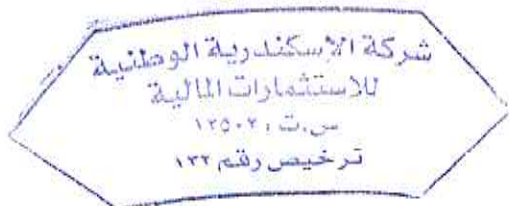 شركة الإسكندرية الوطنية
للاستثمارات المالية
س.ت : ١٢٥٠٢
ترخيص رقم ١٣٢